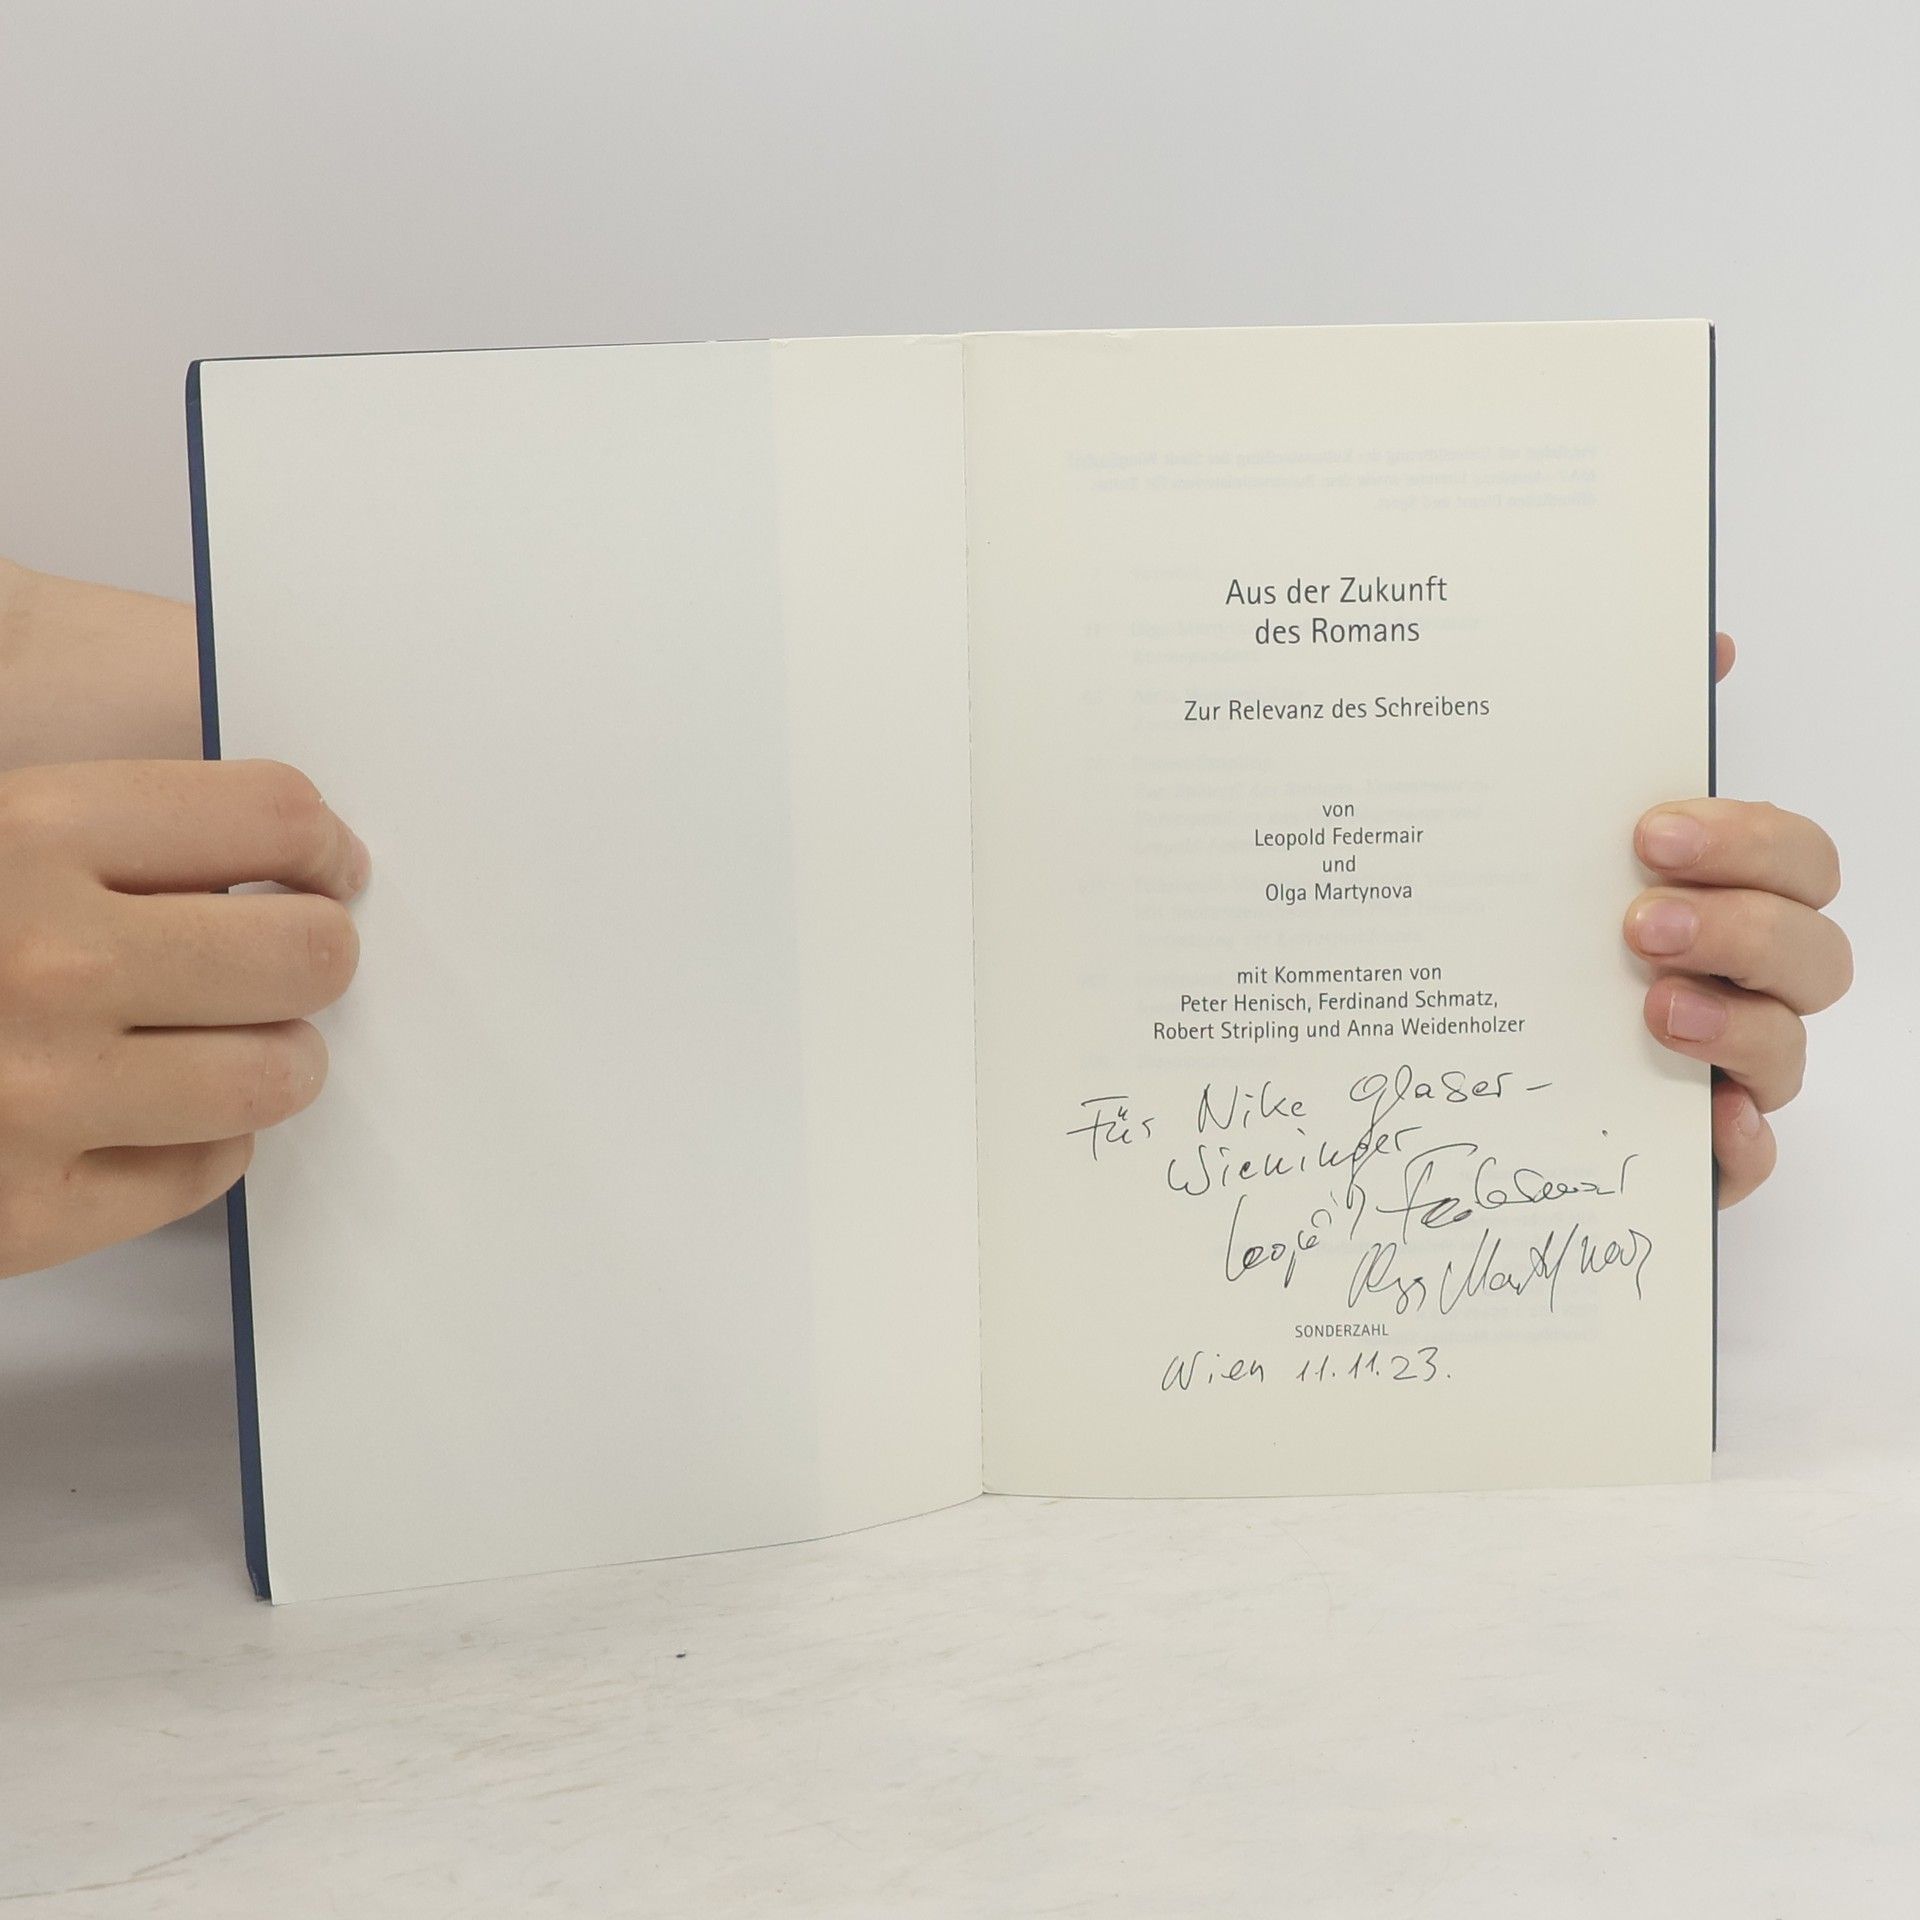 Aus der Zukunft
des Romans
Zur Relevanz des Schreibens
von
Leopold Federmair
und
Olga Martynova
mit Kommentaren von
Peter Henisch, Ferdinand Schmatz,
Robert Stripling und Anna Weidenholzer
Für Nike Glaser-
Wieninger
Leopold Federmair
Olga Martynova
SONDERZAHL
Wien 11.11.23.